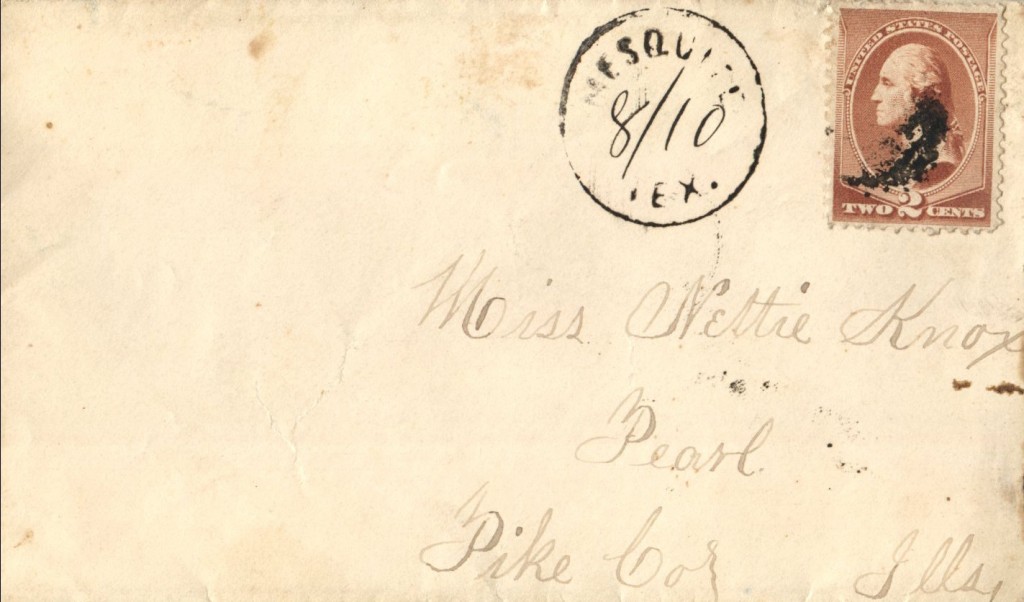 MESQUITE
8/10
TEX.
UNITED STATES POSTAGE
TWO 2 CENTS
Miss Nettie Knox
Pearl
Pike Co., Ills,